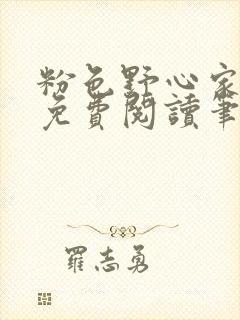 粉色野心家
免費閱讀筆
羅志勇